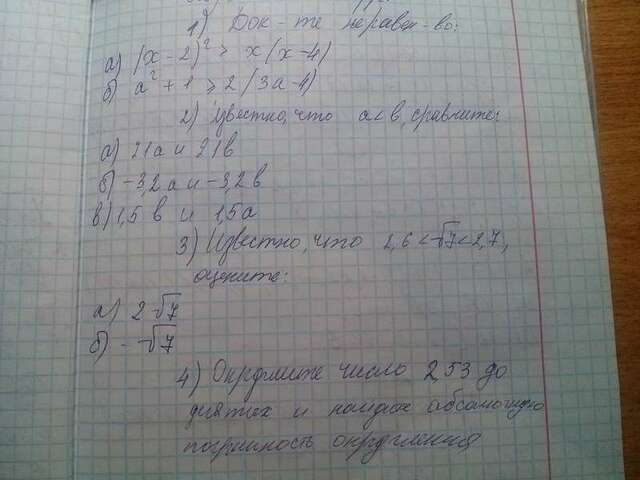 1) Док-те неравен-во:
а) (x-2)² > x(x-4)
б) а² + 1 ≥ 2(3а-4)
2) Известно, что а<в, сравните:
а) 21а и 21в
б) -3,2а и -3,2в
в) 1,5в и 1,5а
3) Известно, что 2,6<√7<2,7,
оцените:
а) 2√7
б) -√7
4) Округлите число 2,53 до
десятых и найдите абсолютную
погрешность округления